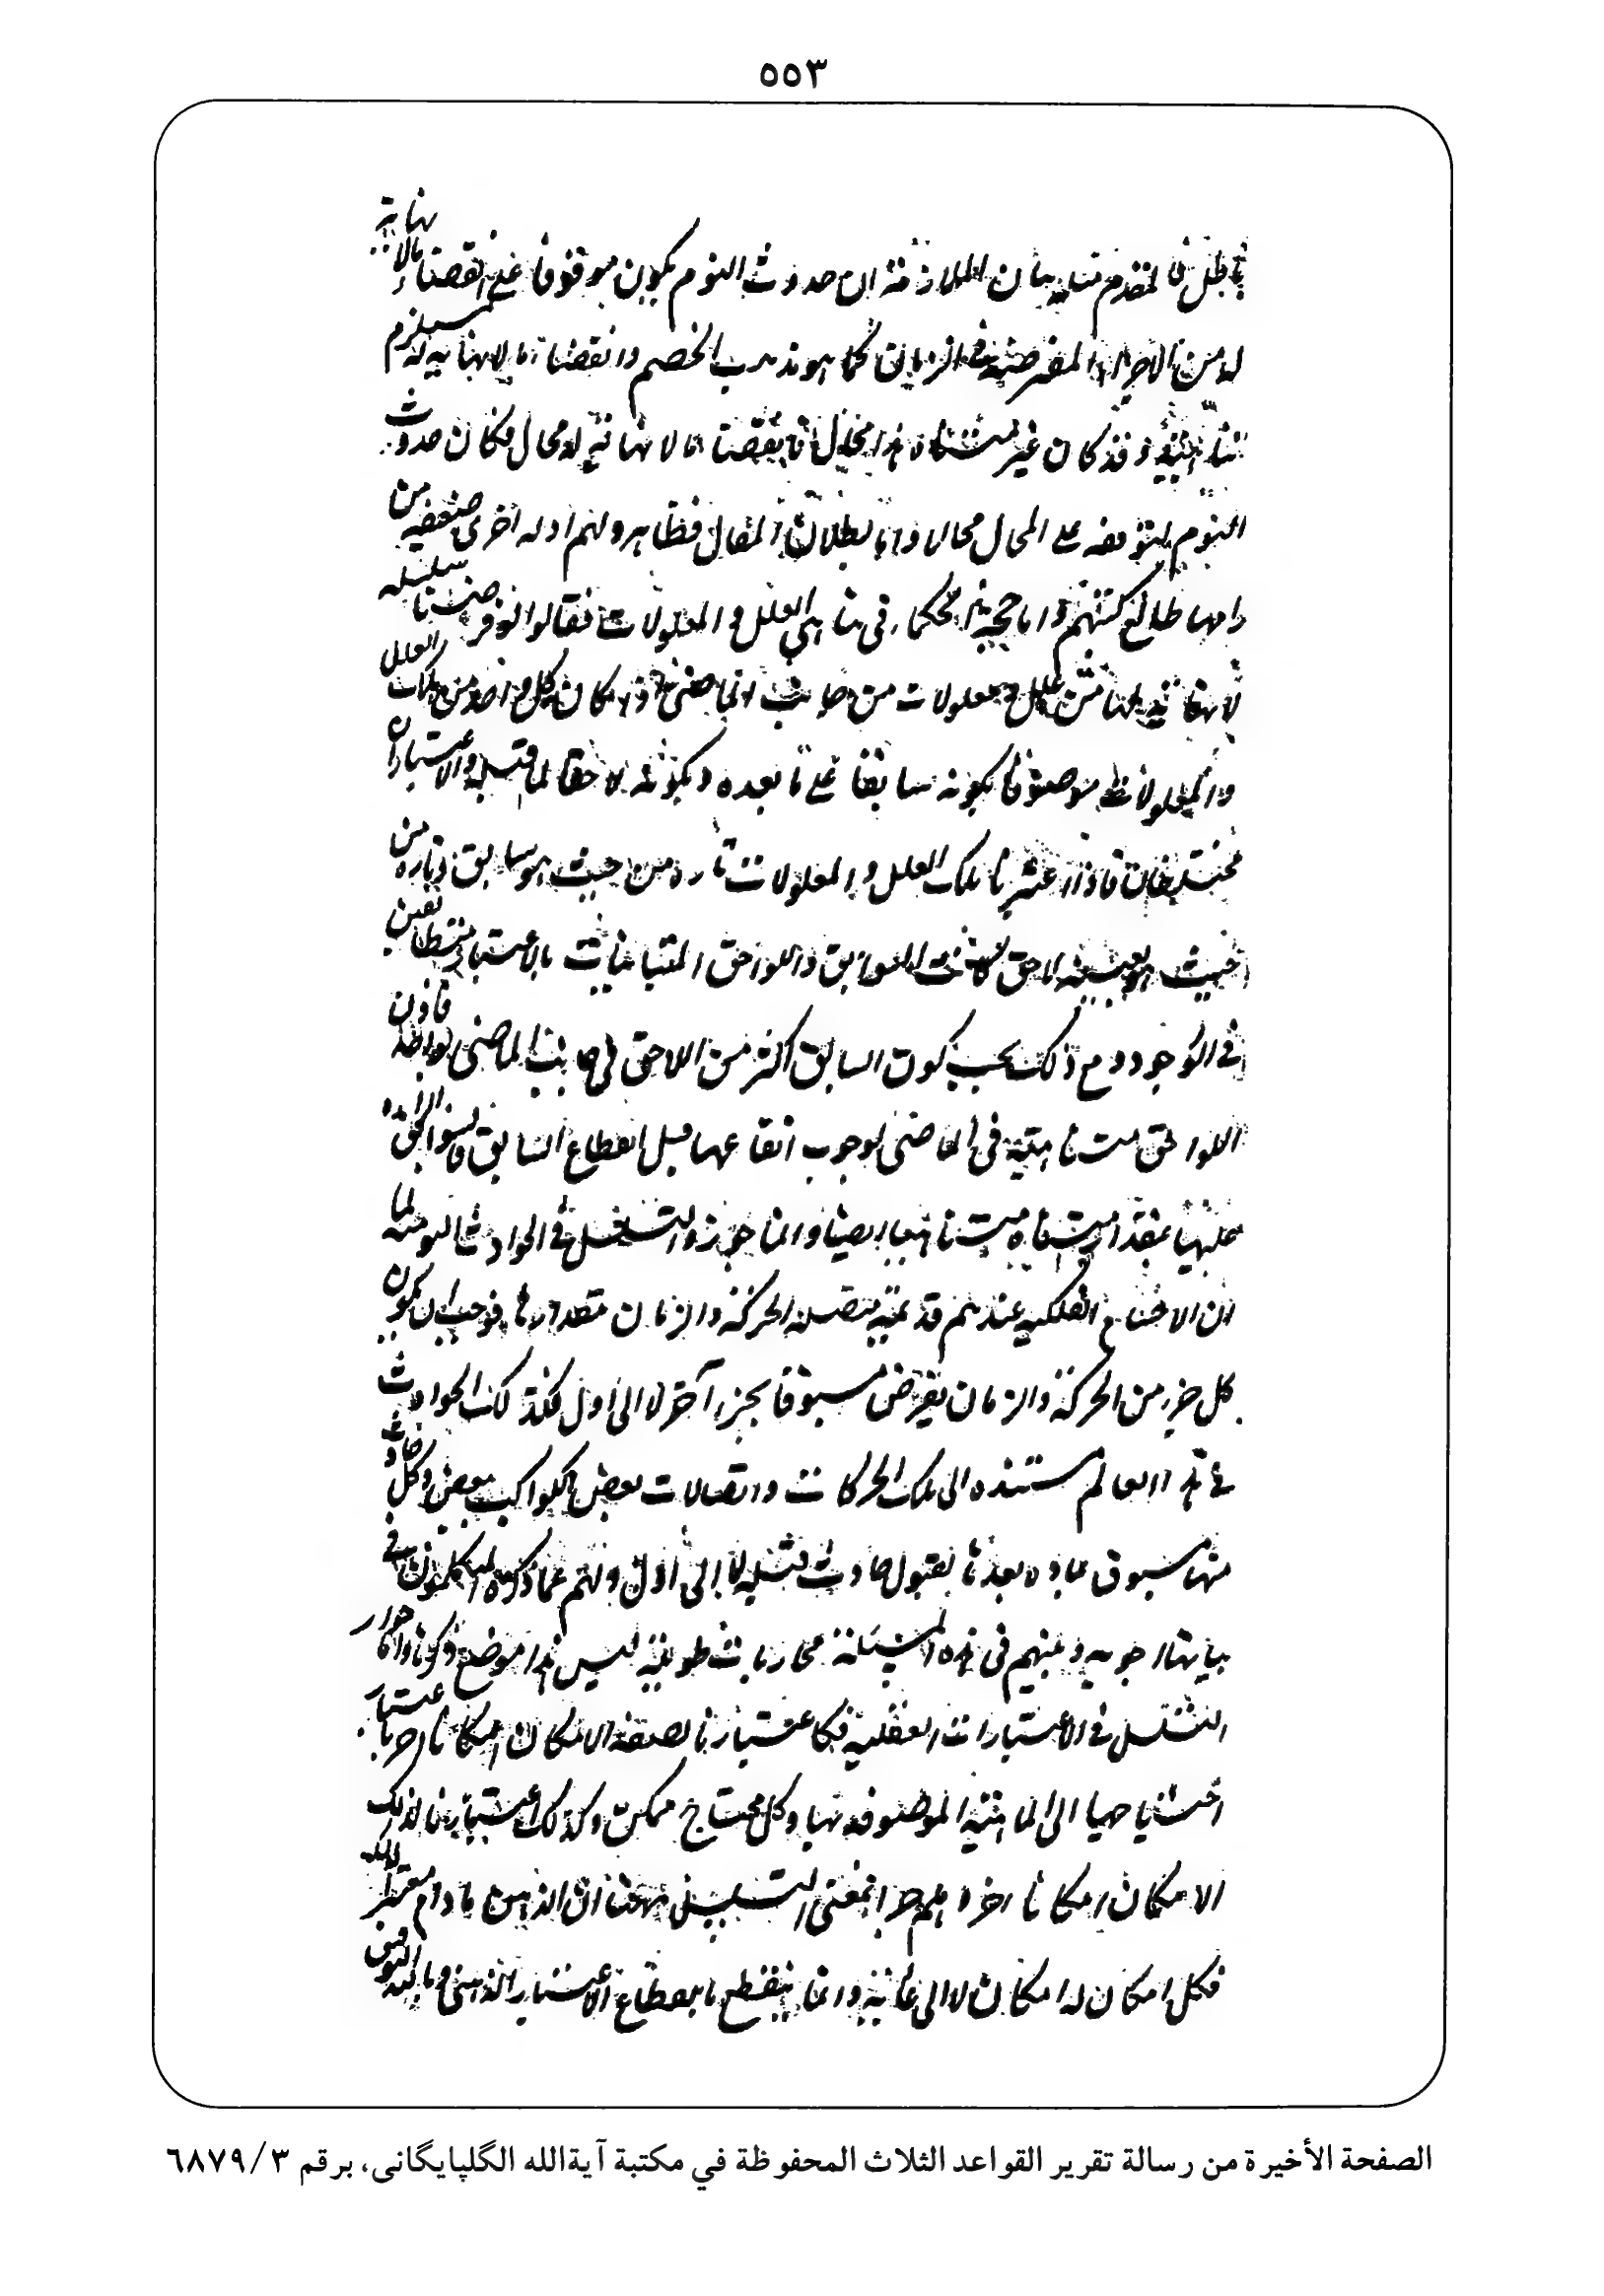 ٥٥٣
باطل فالمقدم مثله بيان الملازمة ان حدوث اليوم يكون موقوفا على انقضاء ما لا نهاية
له من الاجزاء المفروضة في الزمان كما هو مذهب الخصم وانقضاء ما لا نهاية له يستلزم
وقد كان غير متناه هذا محال فانقضاء ما لا نهاية له محال فكان حدوث
اليوم لتوقفه على المحال محالا واما بطلان التالي فظاهر ولهم ادلة اخرى ضعيفة من
رامها طالع كتبهم واما حجة الحكماء في تناهي العلل والمعلولات فقالوا لو فرضنا سلسلة
لا نهاية لها من علل ومعلولات من جانب الماضي اذا كان كل واحد من تلك العلل
والمعلولات موصوفا بكونه سابقا على ما بعده وبكونه لاحقا لما قبله والاعتباران
مختلفان فاذا اعتبرنا تلك العلل والمعلولات تارة من حيث هو سابق وتارة من
حيث هو بعينه لاحق كانت السوابق واللواحق المتباينات بالاعتبار متطابقين
في الوجود ومع ذلك يجب كون السابق اكثر من اللاحق في جانب الماضي بواحد فاذن
اللواحق متناهية في الماضي لوجوب انقطاعها قبل انقطاع السابق والسوابق الزائدة
عليها بمقدار متناه متناهية ايضا وانما جوزوا التسلسل في الحوادث اليومية لما
ان الاوضاع الفلكية عندهم قديمة متصلة الحركة والزمان مقدارها فوجب ان يكون
كل جزء من الحركة والزمان يفرض مسبوقا بجزء آخر لا الى اول فكذلك الحوادث
في هذا العالم مستندة الى تلك الحركات واتصالات بعض الكواكب ببعض وكل حادث
منها مسبوق بمادة بعدها لقبول حادث قبله لا الى اول ولهم عما ذكره المتكلمون في
بيانها اجوبة وبينهم في هذه المسئلة محاربات طويلة ليس هذا موضع ذكرها واما جواز
التسلسل في الاعتبارات العقلية فكاعتبارنا لصفة الامكان امكانا آخر باعتبار
احتياجها الى الماهية الموصوفة بها وكل محتاج ممكن وكذلك اعتبارنا لذلك
الامكان امكانا آخر وهلم جرا فمعنى التسلسل ههنا ان الذهن ما دام معتبرا
فكل امكان له امكان لا الى غاية وانما ينقطع بانقطاع الاعتبار الذهني وبالله التوفيق
الصفحة الأخيرة من رسالة تقرير القواعد الثلاث المحفوظة في مكتبة آيةالله الگلپايگانى، برقم ٦٨٧٩/٣